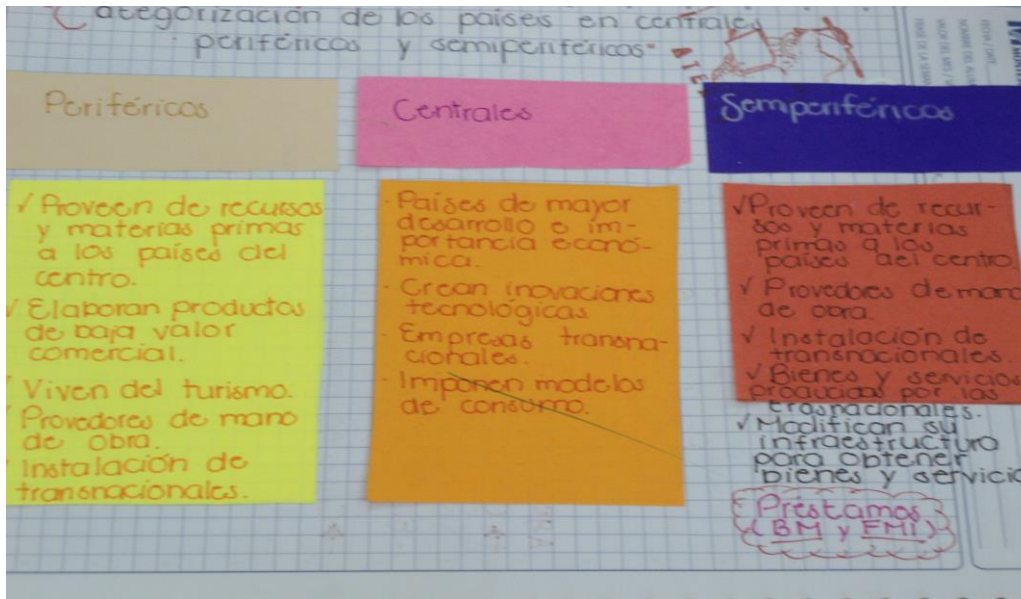 Categorización de los países en centrales
periféricos y semiperiféricos.
Periféricos
✓ Proveen de recursos
y materias primas
a los países del
centro.
✓ Elaboran productos
de baja valor
comercial.
✓ Viven del turismo.
✓ Provedores de mano
de obra.
✓ Instalación de
transnacionales.
Centrales
· Países de mayor
desarrollo e im-
portancia econó-
mica.
· Crean inovaciones
tecnológicas
· Empresas transna-
cionales.
· Imponen modelos
de consumo.
Semperiféricos
✓ Proveen de recur-
sos y materias
primas a los
países del centro.
✓ Provedores de mano
de obra.
✓ Instalación de
transnacionales.
✓ Bienes y servicios
producidos por las
trasnacionales.
✓ Modifican su
infraestructura
para obtener
bienes y servicio
Préstamos
(BM y FMI)